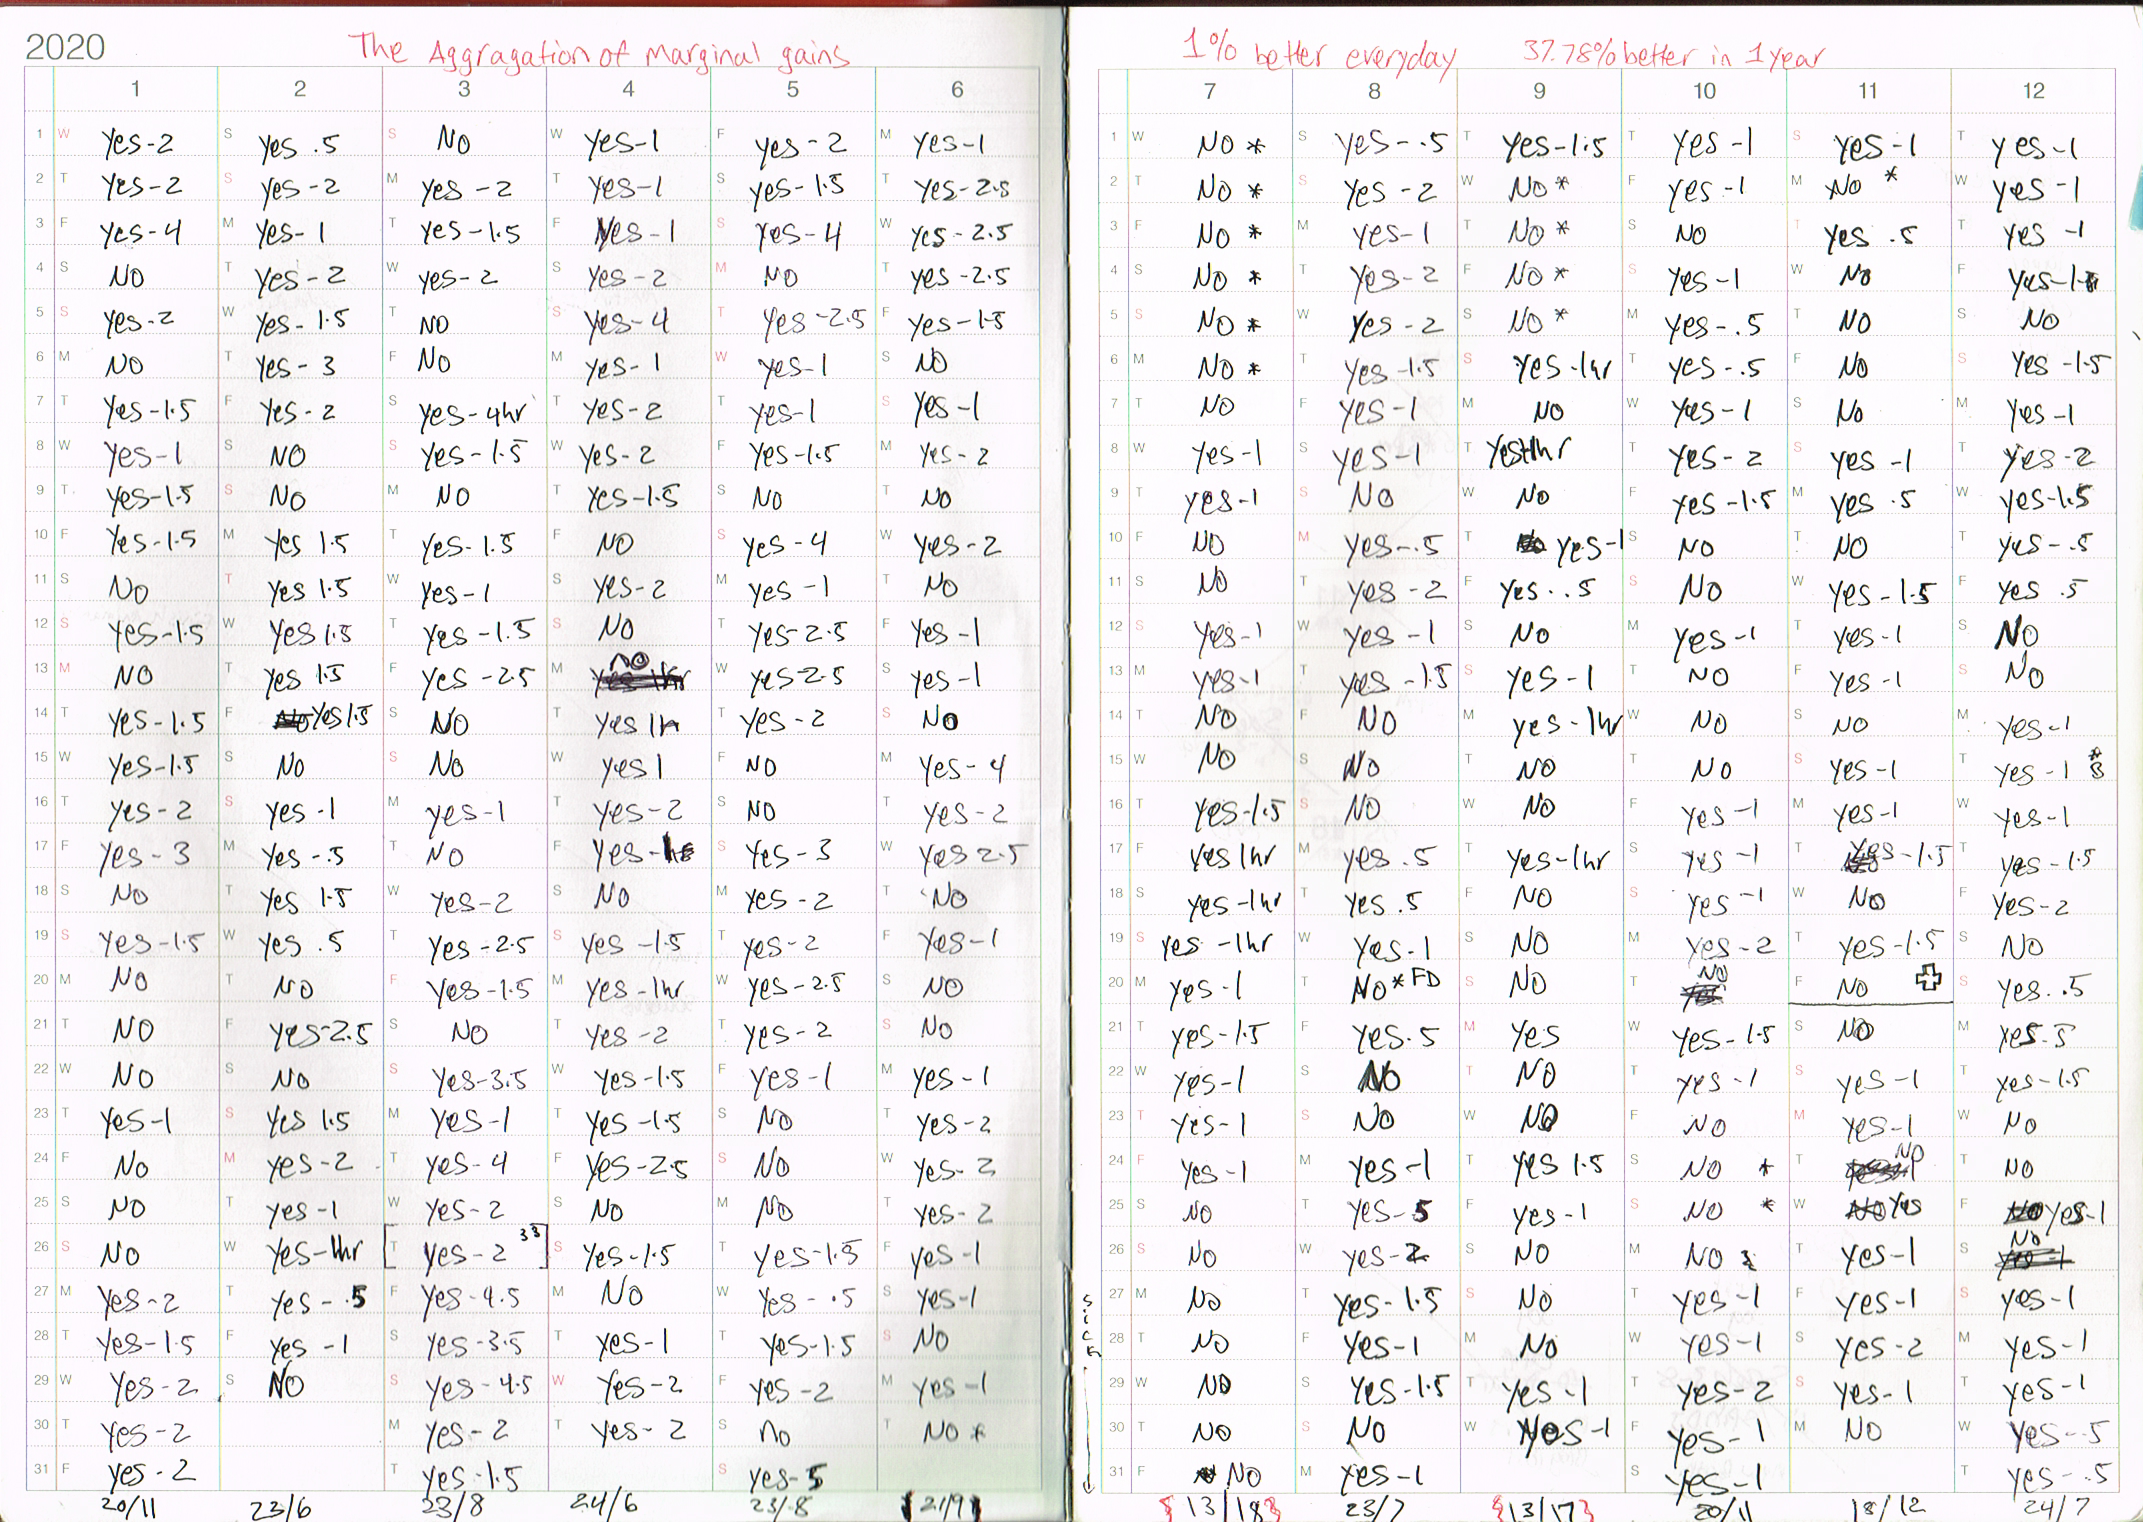 2020 The Aggragation of marginal gains 1% better everyday 37.78% better in 1 year
1 2 3 4 5 6 7 8 9 10 11 12
1 W Yes-2 S Yes .5 S NO W Yes-1 F yes-2 M Yes-1 1 W NO * S Yes-.5 T Yes-1.5 T Yes-1 S Yes-1 T yes-1
2 T Yes-2 S yes-2 M Yes-2 T Yes-1 S yes-1.5 T Yes-2.5 2 T NO * S Yes-2 W NO * F yes-1 M NO * W Yes-1
3 F Yes-4 M Yes-1 T Yes-1.5 F Yes-1 S Yes-4 W Yes-2.5 3 F NO * M yes-1 T NO * S NO T yes .5 T Yes-1
4 S NO T Yes-2 W yes-2 S Yes-2 M NO T Yes-2.5 4 S NO * T Yes-2 F NO * S Yes-1 W No F Yes-1
5 S Yes-2 W Yes-1.5 T NO S Yes-4 T Yes-2.5 F Yes-1.5 5 S NO * W Yes-2 S NO * M Yes-.5 T NO S NO
6 M NO T Yes-3 F NO M Yes-1 W yes-1 S NO 6 M NO * T Yes-1.5 S Yes-1hr T Yes-.5 F No S Yes-1.5
7 T Yes-1.5 F Yes-2 S Yes-4hr T Yes-2 T Yes-1 S Yes-1 7 T NO F Yes-1 M NO W Yes-1 S No M Yes-1
8 W Yes-1 S NO S Yes-1.5 W Yes-2 F Yes-1.5 M Yes-2 8 W Yes-1 S yes-1 T Yes-1hr T Yes-2 S yes-1 T yes-2
9 T Yes-1.5 S NO M NO T Yes-1.5 S NO T NO 9 T yes-1 S NO W NO F Yes-1.5 M yes .5 W yes-1.5
10 F Yes-1.5 M Yes 1.5 T Yes-1.5 F NO S yes-4 W Yes-2 10 F NO M yes-.5 T yes-1 S NO T NO T yes-.5
11 S NO T Yes 1.5 W Yes-1 S Yes-2 M yes-1 T NO 11 S NO T yes-2 F yes-.5 S NO W Yes-1.5 F yes .5
12 S Yes-1.5 W Yes 1.5 T Yes-1.5 S NO T Yes-2.5 F Yes-1 12 S Yes-1 W Yes-1 S NO M yes-1 T yes-1 S NO
13 M NO T Yes 1.5 F Yes-2.5 M NO W yes-2.5 S yes-1 13 M yes-1 T Yes-1.5 S Yes-1 T NO F Yes-1 S No
14 T Yes-1.5 F Yes 1.5 S NO T Yes 1h T yes-2 S NO 14 T NO F NO M yes-1hr W NO S NO M yes-1
15 W Yes-1.5 S NO S NO W Yes 1 F NO M Yes-4 15 W NO S NO T NO T NO S yes-1 T yes-1 *
16 T Yes-2 S yes-1 M yes-1 T Yes-2 S NO T Yes-2 16 T Yes-1.5 S NO W NO F yes-1 M yes-1 W yes-1
17 F Yes-3 M Yes-.5 T NO F Yes- S Yes-3 W Yes 2.5 17 F Yes 1hr M yes .5 T Yes-1hr S yes-1 T Yes-1.5 T yes-1.5
18 S NO T Yes 1.5 W Yes-2 S NO M Yes-2 T NO 18 S Yes-1hr T Yes .5 F NO S yes-1 W NO F yes-2
19 S Yes-1.5 W Yes .5 T Yes-2.5 S Yes-1.5 T yes-2 F Yes-1 19 S yes-1hr W Yes-1 S NO M yes-2 T Yes-1.5 S NO
20 M NO T NO F Yes-1.5 M yes-1hr W Yes-2.5 S NO 20 M yes-1 T NO * FD S NO T NO F NO S Yes-.5
21 T NO F Yes-2.5 S NO T Yes-2 T Yes-2 S NO 21 T Yes-1.5 F Yes.5 M Yes W Yes-1.5 S NO M yes.5
22 W NO S NO S Yes-3.5 W Yes-1.5 F Yes-1 M Yes-1 22 W Yes-1 S NO T NO T yes-1 S yes-1 T yes-1.5
23 T Yes-1 S Yes 1.5 M Yes-1 T Yes-1.5 S No T Yes-2 23 T Yes-1 S NO W NO F NO M Yes-1 W No
24 F NO M Yes-2 T Yes-4 F Yes-2.5 S NO W Yes-2 24 F yes-1 M Yes-1 T yes 1.5 S NO * T NO T NO
25 S NO T Yes-1 W Yes-2 S NO M NO T Yes-2 25 S No T Yes-5 F yes-1 S NO * W Yes F Yes-1
26 S NO W Yes-1hr T Yes-2 S Yes-1.5 T Yes-1.5 F Yes-1 26 S NO W Yes-2 S NO M NO T Yes-1 S NO
27 M Yes-2 T Yes-.5 F Yes-4.5 M NO W Yes-.5 S Yes-1 Sick 27 M No T Yes-1.5 S NO T yes-1 F Yes-1 S yes-1
28 T Yes-1.5 F Yes-1 S Yes-3.5 T Yes-1 T Yes-1.5 S NO 28 T NO F Yes-1 M NO W yes-1 S Yes-2 M yes-1
29 W Yes-2 S NO S Yes-4.5 W Yes-2 F Yes-2 M yes-1 29 W NO S Yes-1.5 T Yes-1 T yes-2 S yes-1 T yes-1
30 T Yes-2 M Yes-2 T Yes-2 S no T NO * 30 T NO S NO W Yes-1 F yes-1 M NO W Yes-.5
31 F Yes-2 T Yes-1.5 S Yes-5 31 F NO M Yes-1 S Yes-1 T yes-.5
20/11 23/6 23/8 24/6 23/8 21/9 {13/18} 23/7 {13/17} 20/11 18/12 24/7